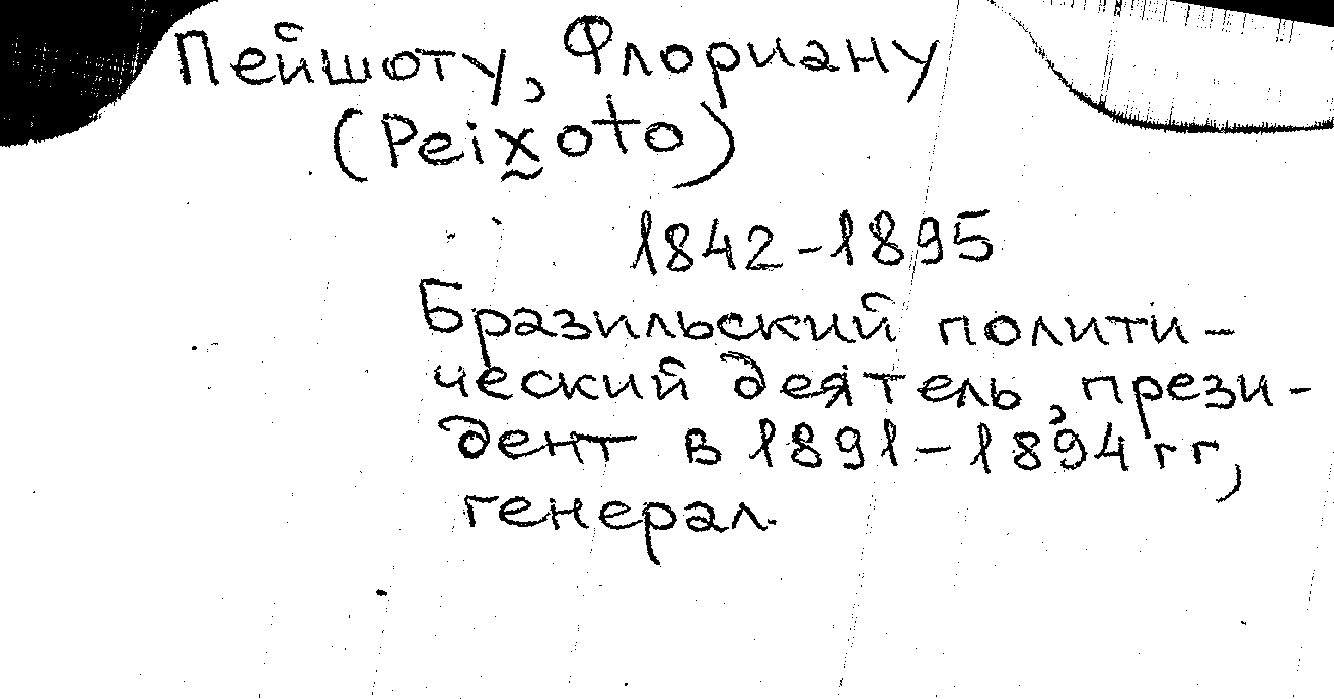 Пейшоту, Флориану
(Peixoto)
1842-1895
Бразильский полити-
ческий деятель, прези-
дент в 1891-1894 гг,
генерал.